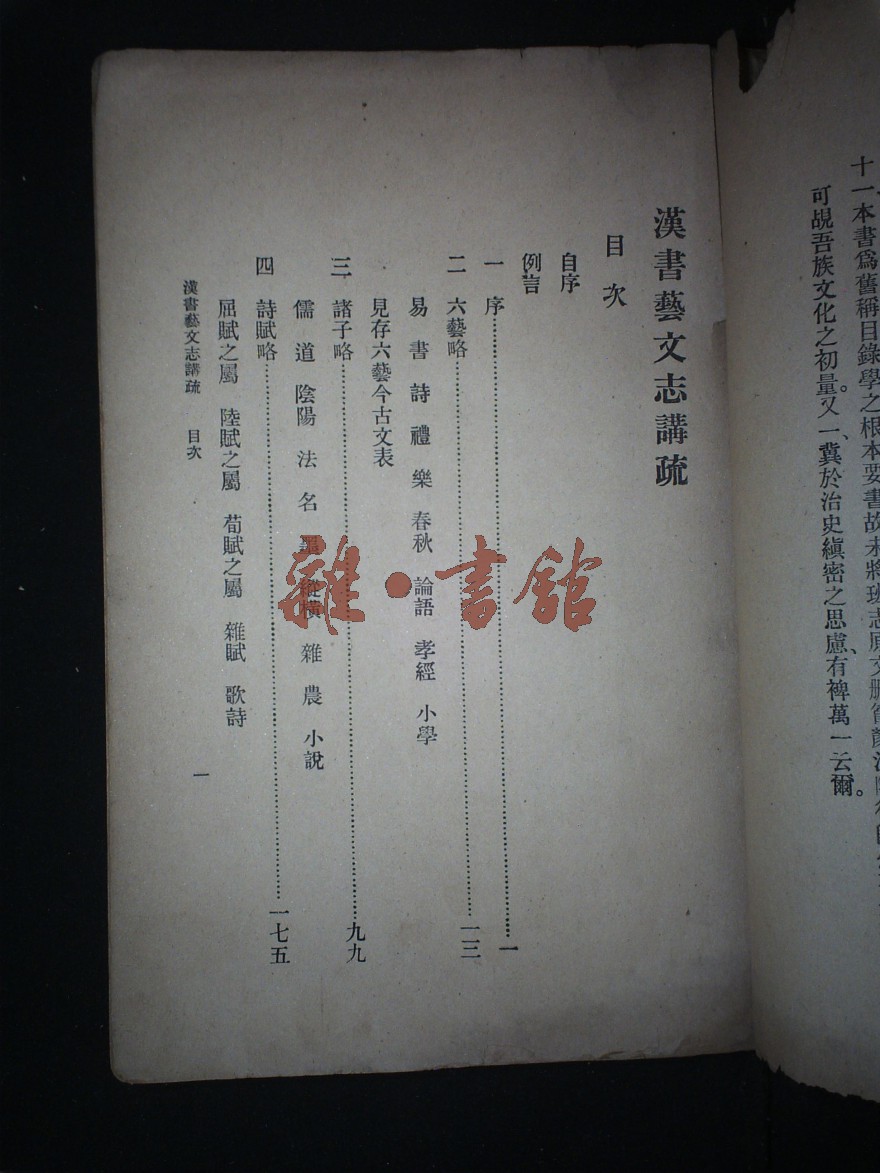 十一本書爲舊稱目錄學之根本要書故未將班志原文刪
可覘吾族文化之初量。又一、冀於治史縝密之思慮、有裨萬一云爾。
漢書藝文志講疏
目次
自序
例言
一 序 一
二 六藝略 一三
易 書 詩 禮 樂 春秋 論語 孝經 小學
見存六藝今古文表
三 諸子略 九九
儒 道 陰陽 法 名 墨 縱橫 雜 農 小說
四 詩賦略 一七五
屈賦之屬 陸賦之屬 荀賦之屬 雜賦 歌詩
漢書藝文志講疏 目次 一
雜·書館